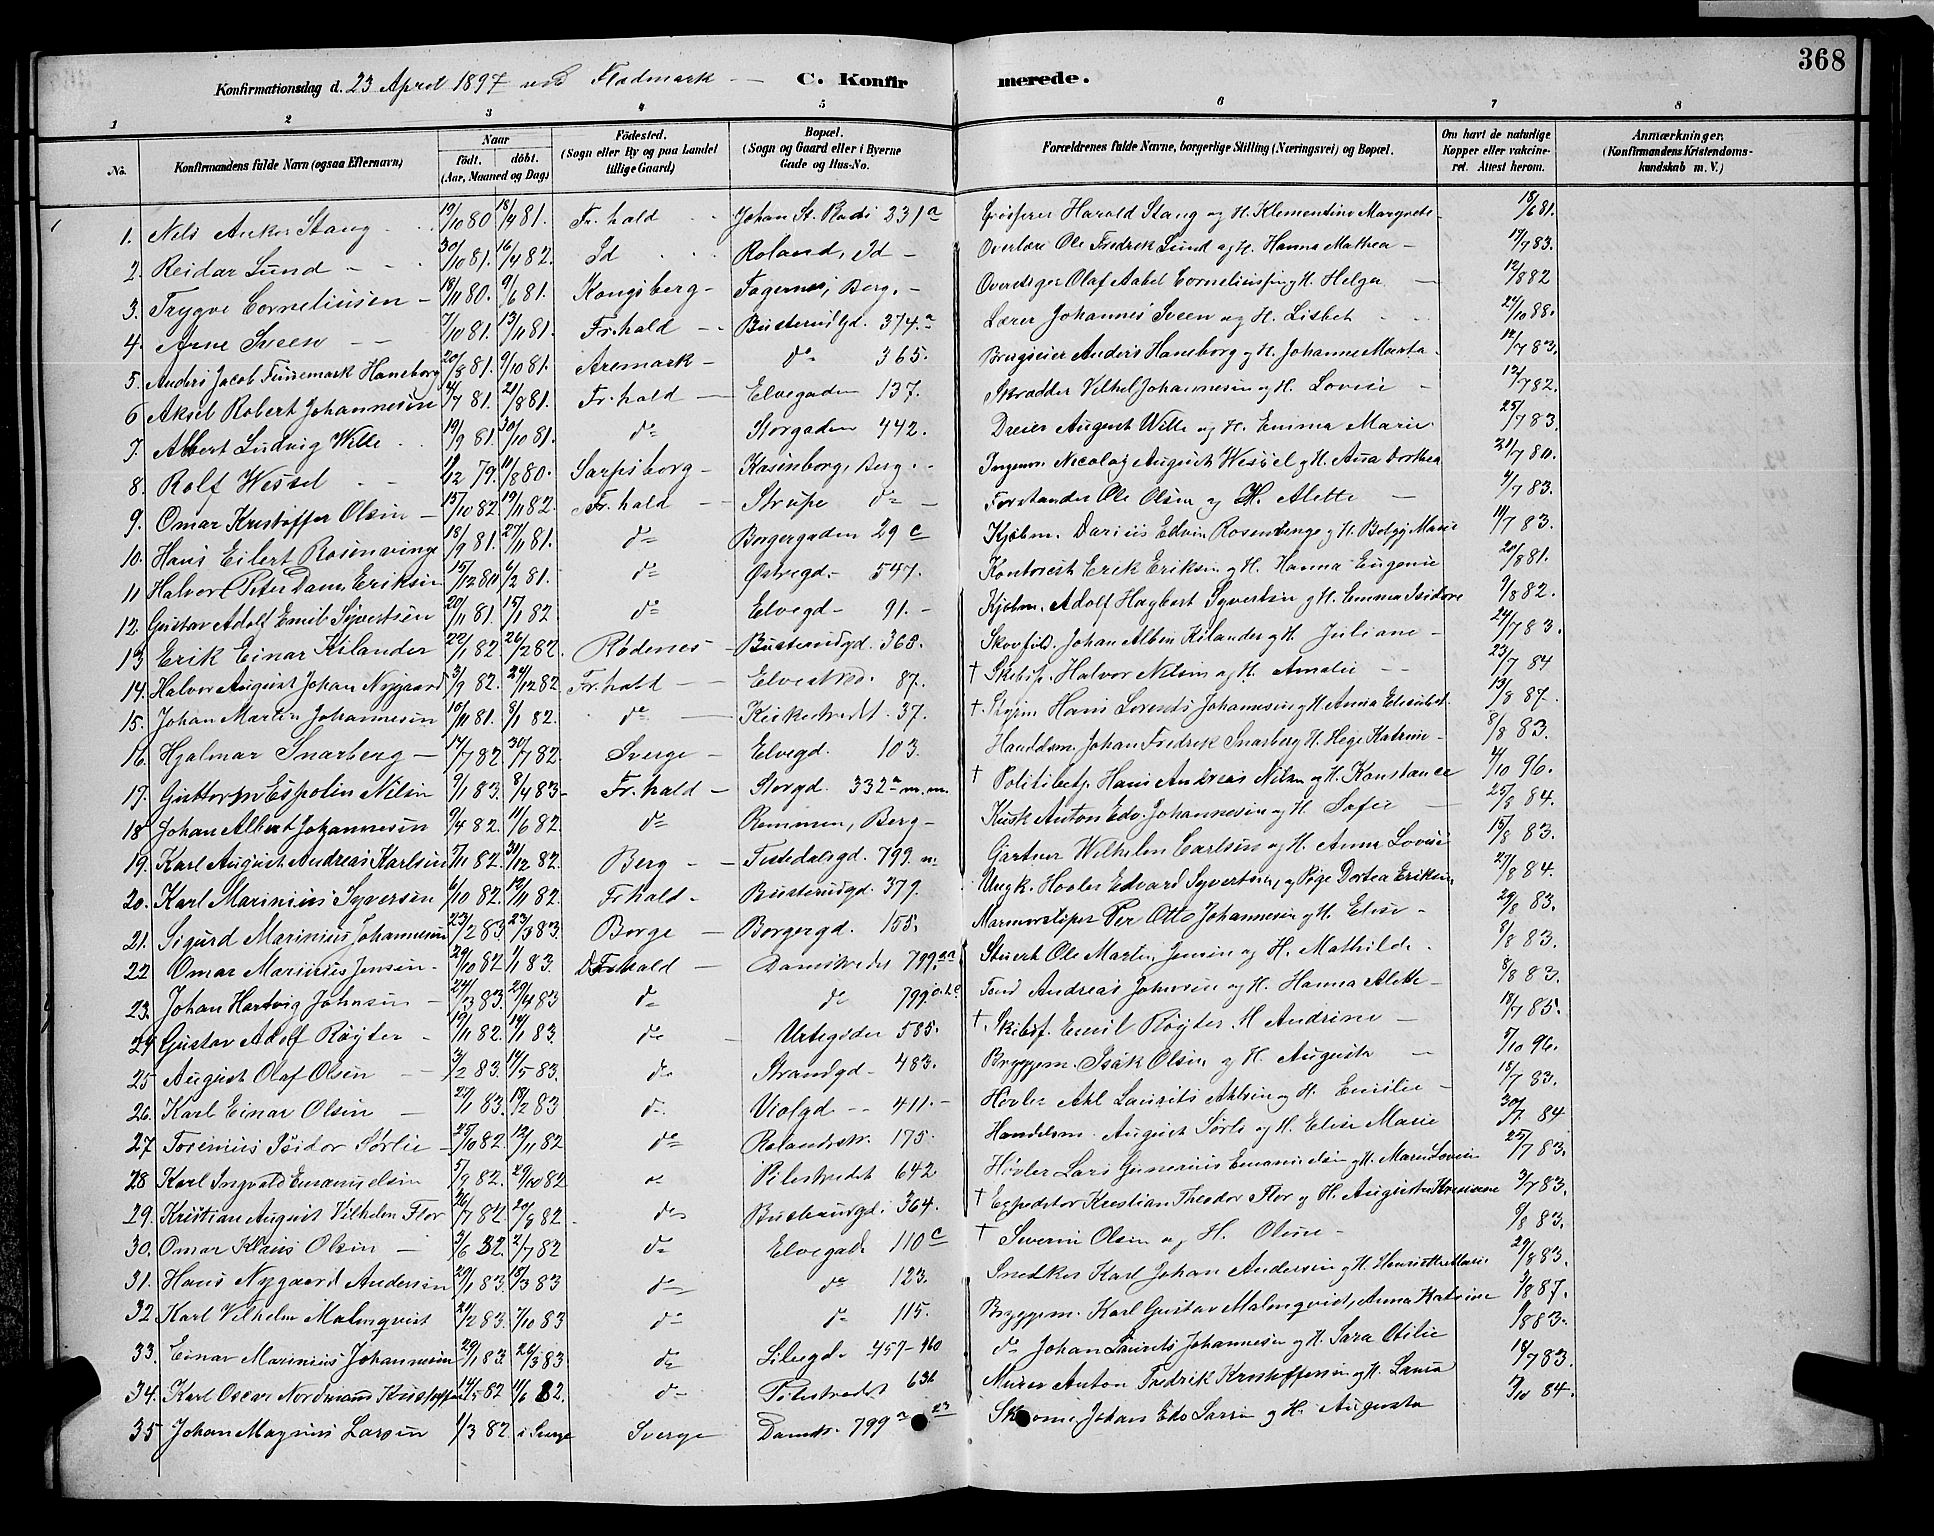 368
Konfirmationsdag d. 23 April 1897 ved Flodmark — C. Konfirmerede.
1 2 3 4 5 6 7 8
No. Konfirmandens fulde Navn (ogsaa Efternavn) Naar født. døbt. (Aar, Maaned og Dag) Födested. (Sogn eller By og paa Landet tillige Gaard) Bopæl. (Sogn og Gaard eller i Byerne Gade og Hus-No. Forældrenes fulde Navne, borgerlige Stilling (Næringsvei) og Bopæl. Om havt de naturlige Kopper eller vakcineret. Attest herom. Anmærkninger. (Konfirmandens Kristendomskundskab m. V.)
1. Nils Anker Stang 19/10 80 18/4 81. Fr.hald Johan St. Plads 231 a Harald Stang og H. Klementine Margrete 18/6 81.
2. Reidar Lund 30/10 81. 16/4 82. Id Roland, Id Overlærer Ole Fredrik Lund og H. Hanna Mathea 17/7 83.
3. Trygve Corneliusen 18/11 80. 9/6 81. Kongsberg Fagernes, Berg. Olaf Aabel Corneliussen og H. Helga 12/8 82
4. Arne Sveen 7/10 81. 13/11 81. Fr.hald Busterudgd. 374 a Lærer Johannes Sveen og H. Lisbet 24/10 88.
5. Anders Jacob Haneborg 20/8 81. 9/10 81. Aremark do 365. Brugseier Anders Haneborg og H. Johanne Marta 12/7 83.
6 Aksel Robert Johannesen 4/7 81. 21/8 81. Fr.hald Elvegaden 137. Skrædder Vilhel Johannesen og H. Lovise 12/7 82.
7. Albert Ludvig Wille 19/9 81. 30/10 81. do Storgaden 442. Dreier August Wille og H. Emma Marie 25/7 83.
8. Rolf Wessel 12 79. /8 80. Sarpsborg Berg. Nicolay August Wessel og H. Ana Dorthea 21/7 80.
9. Omar Kristoffer Olsen 15/10 82. 19/11 82. Fr.hald Strupe do Forstander Ole Olsen og H. Alette 4/7 83.
10. Hans Eilert Rosenvinge 18/9 81. 27/11 81. do Borgergaden 29 c Kjøbm. Darius Edvin Rosenvinge og H. Marie 19/7 83.
11 Halvor Peter Eriksen 15/12 80 6/2 81. do Østregd. 547. Kontorist Erik Eriksen og H. Hanna Eugenie 20/8 81.
12. Gustav Adolf Emil Syvertsen 20/11 81. 15/1 82 do Elvegd. 91. Kjøbm. Adolf Hagbart Syvertsen og H. Emma Isidore 9/8 82.
13 Erik Einar Kilander 22/1 82 26/2 82. Rødenes Busterudgd. 368. Johan Alben Kilander og H. Juliane 24/7 83.
14. Halvor August Johan Nygaard 3/9 82. 24/12 82 Fr.hald Elvestred. 87. † Skibsf. Halvor Nilsen og H. Amalie 23/7 84
15. Johan Martin Johannesen 10/11 81. 8/1 82. do Kirkestredet 37. † Hans Lorents Johannesen og H. Anna Elisabet 13/8 87.
16. Hjalmar Snarberg 14/7 82 30/7 82. Sverge Elvegd. 103. Handelsm. Johan Fredrik Snarberg H. Hege Katrine 8/8 83.
17. Guttorm Espolin Nilsen 9/1 83. 8/4 83 Fr.hald Storgd. 332 a m.m. † Politibetj. Hans Andreas Nilsen og H. Konstance 4/10 96.
18 Johan Albert Johannesen 9/4 82. 11/6 82. do Remmen, Berg Kusk Anton Edv. Johannesen og H. Sofie 25/8 84.
19. Karl August Andreas Karlsen 7/11 82 31/12 82. Berg Tistedalsgd. 799. m Gartner Wilhelm Carlsen og H. Anna Lovise 15/8 83.
20. Karl Marinius Syversen 6/10 82. 12/11 82 Fr.hald Busterudgd. 379. Ungk. Høvler Edvard Syvertsen, og Pige Dortea Eriksen 27/8 84.
21. Sigurd Marinius Johannesen 23/2 83. 23/3 83. Borge Borgergd. 155. Per Otto Johannesen og H. Elise 29/8 83.
22 Omar Marinius Jensen 29/10 82 1/1 83. Fr.hald Damstredet 799. aa Stuert Ole Martin Jensen og H. Mathilde 8/8 83.
23. Johan Hartvig Johnsen 24/3 83. 29/4 83 do do 799. Andreas Johnsen og H. Hanna Alette 8/8 83.
24 Gustav Adolf Røyter 19/11 82. 14/1 83. do Urtegden 585. † Skibsf. Emil Røyter H Andrine 18/7 85.
25 August Olaf Olsen 3/2 83. 14/5 83. do Strandgd. 483. Bryggem. Isak Olsen og H. Augusta 5/10 96.
26. Karl Einar Olsen 25/1 83. 19/2 83 do Violgd 411. Høvler Laurits og H. Emilie 18/7 83.
27. Torenius Isidor Sørlie 25/10 82. 12/11 82 do Rolandstr. 175. Handelsm. August Sørli og H. Elise Marie 30/7 84
28 Karl Ingvald Emanuelsen 5/9 82. 29/10 82 do Pilestredet 642 Høvler Lars Gunerius Emanuelsen og H. Maren Lovise 25/7 83.
29. Kristian August Vilhelm Flor 26/7 82 20/8 82 do 364. † Expeditør Kristian Theodor Flor og H. Augusta 3/7 83.
30. Omar Klaus Olsen 3/6 82 2/7 82 do Elvegade 110 c † Severin Olsen og H. Oline 9/8 83.
31. Hans Nygaard Andersen 29/1 83. 18/3 83 do do 123. Snedker Karl Johan Andersen og H. Marie 29/8 83.
32 Karl Vilhelm Malmqvist 24/2 83. 7/10 83 do do 115. Bryggem. Karl Gustav Malmqvist, Anna Katrine 3/8 87.
33. Einar Marinius Johannesen 29/1 83. 26/3 83 do Lilegd. 457-460 do Johan Laurits Johannesen og H. Sara Otilie 9/8 83.
34. Karl Oscar Nordmann Kristoffersen 14/5 82 11/6 82. do Pilestredet 636 Murer Anton Fredrik Kristoffersen og H. Laura 18/7 83.
35 Johan Magnus Larsen 1/3 82. i Sverge Sverge Damstr. 799 a 23 Johan Edv Larsen og H. Augusta 5/10 84.